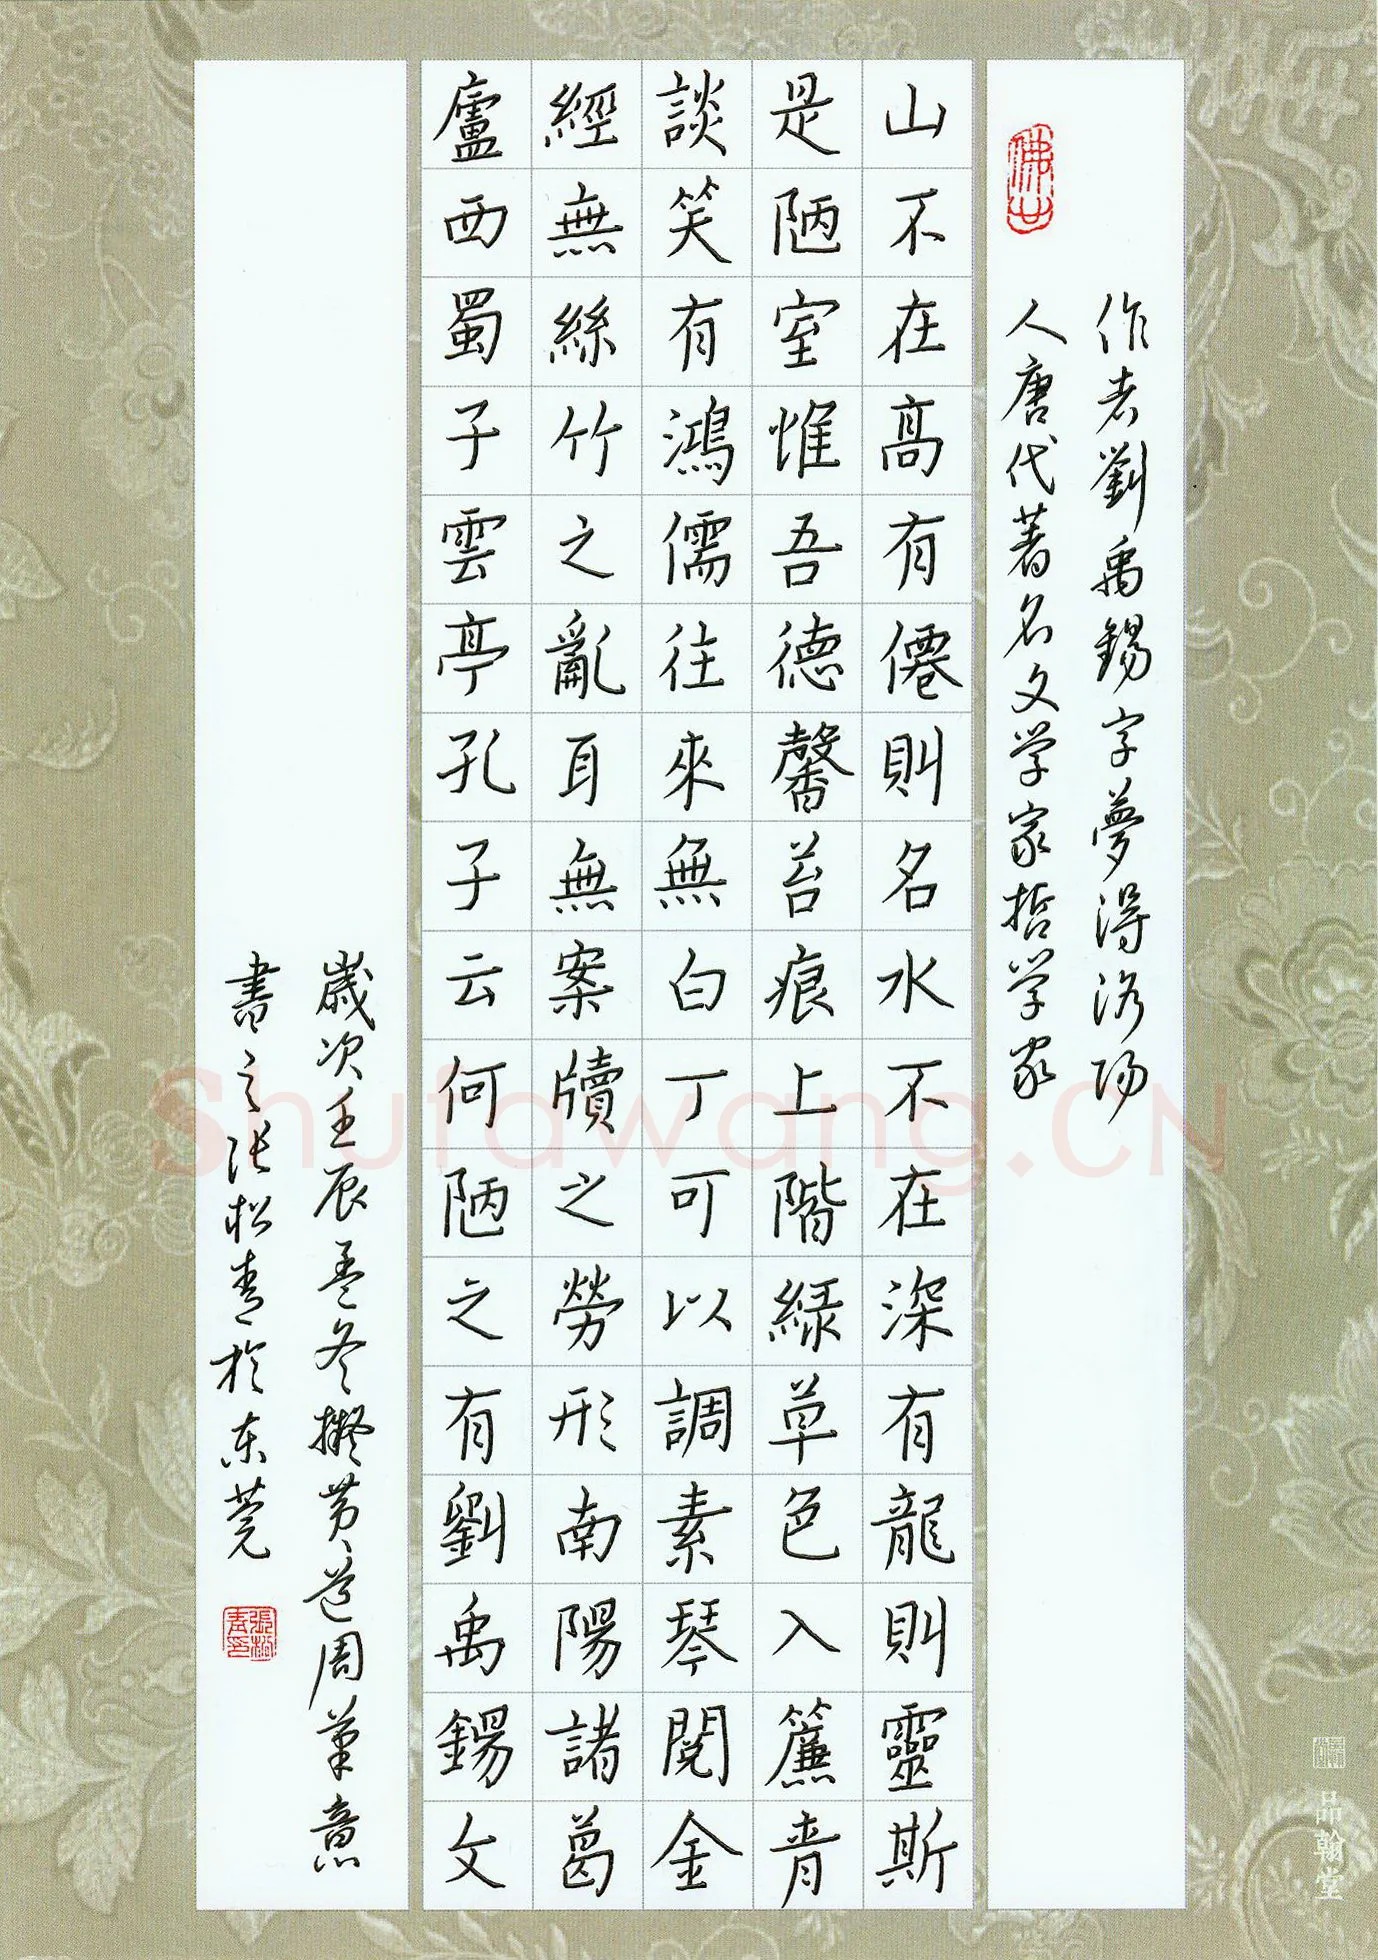 作者劉禹錫字夢得洛阳
人唐代著名文学家哲学家
山不在高有僊則名水不在深有龍則靈斯
是陋室惟吾德馨苔痕上階緑草色入簾青
談笑有鴻儒往來無白丁可以調素琴閱金
經無絲竹之亂耳無案牘之勞形南陽諸葛
廬西蜀子雲亭孔子云何陋之有劉禹錫文
歲次壬辰孟冬擬黄道周筆意
書之张松青於东莞
張松青印
Shufawang.CN
品翰堂